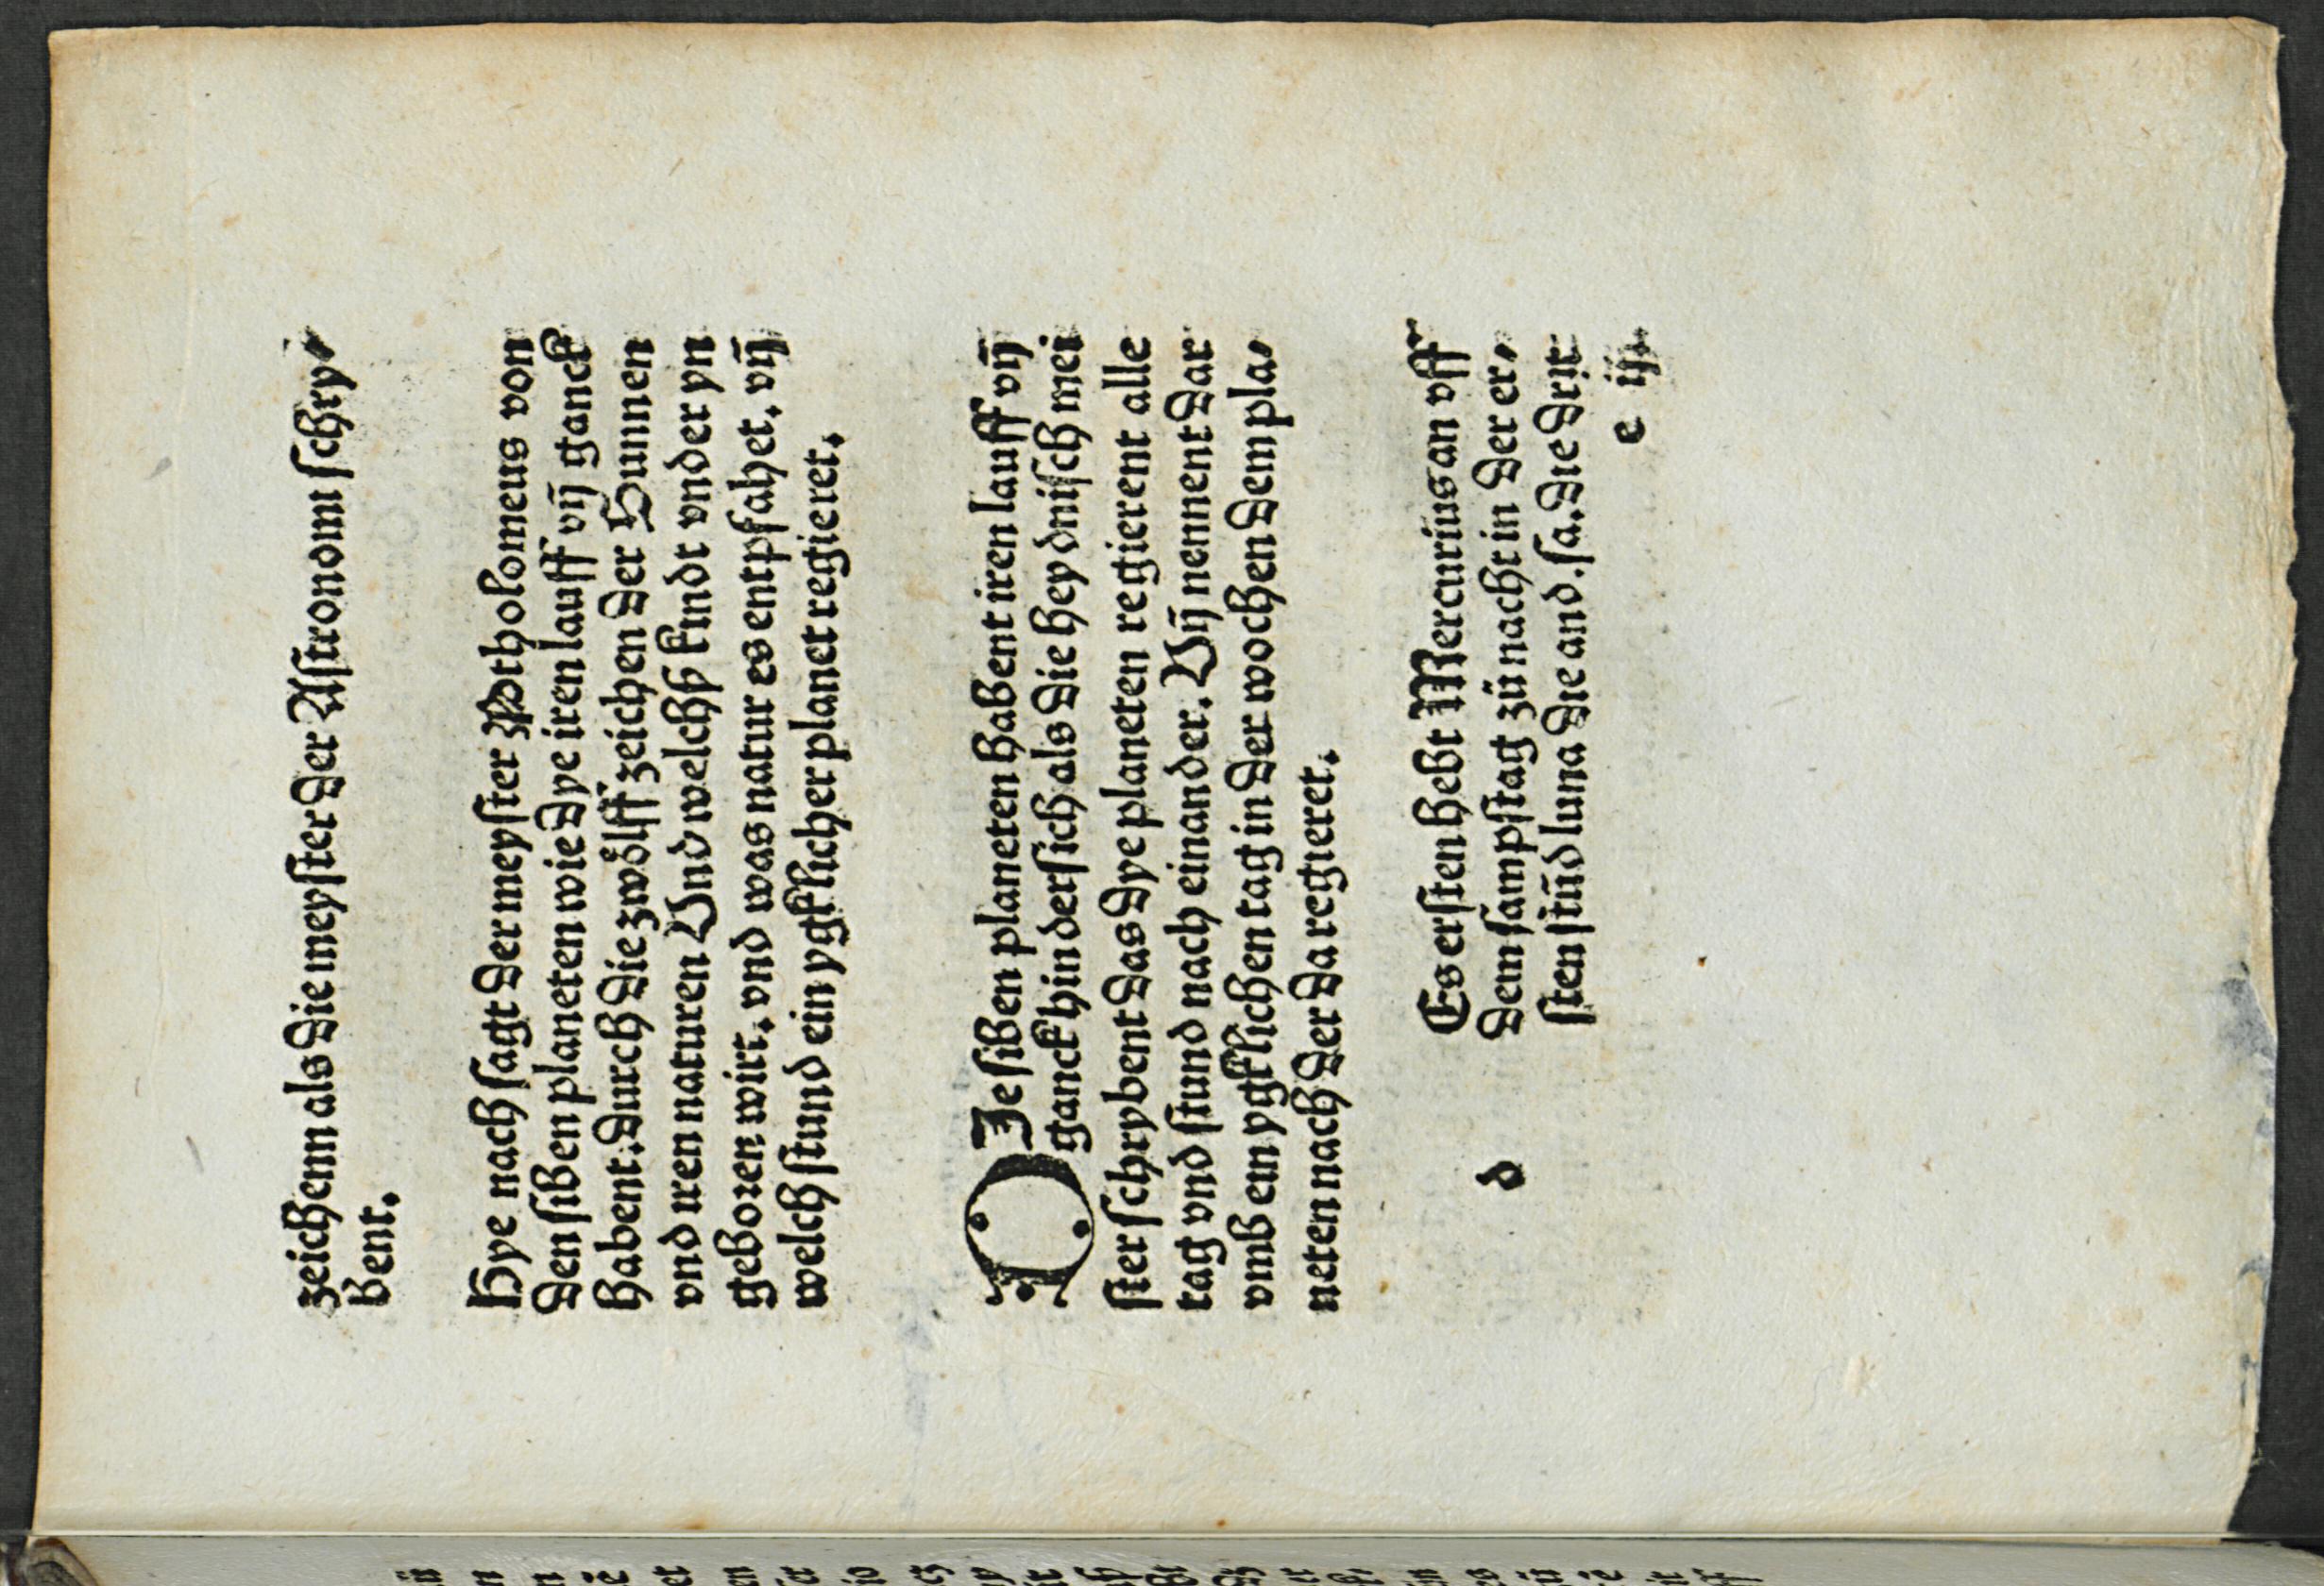 zeichenn als die meyster der Astronomi schry⸗
bent.
Hye nach sagt der meyster Ptholomeus von
den siben planeten wie dye iren lauff vn̄ ganck
habent. durch die zwoͤlff zeichen der Sunnen
vnd iren naturen Vnd welchß kindt vnder yn
geboren wirt. vnd was natur es entpfahet. vn̄
welch stund ein ygklicher planet regieret.
DJe siben planeten habent iren lauff vn̄
ganck hindersich als die heydnisch mei
ster schrybent das dye planeten regierent alle
tag vnd stund nach einander. Vn̄ nennent dar
vmb ein ygklichen tag in der wochen dem pla⸗
neten nach der da regieret.
Es ersten hebt Mercurius an vff
d dem sampstag zů nacht in der er⸗
sten stūd luna die and. sa. die drit
e ij.